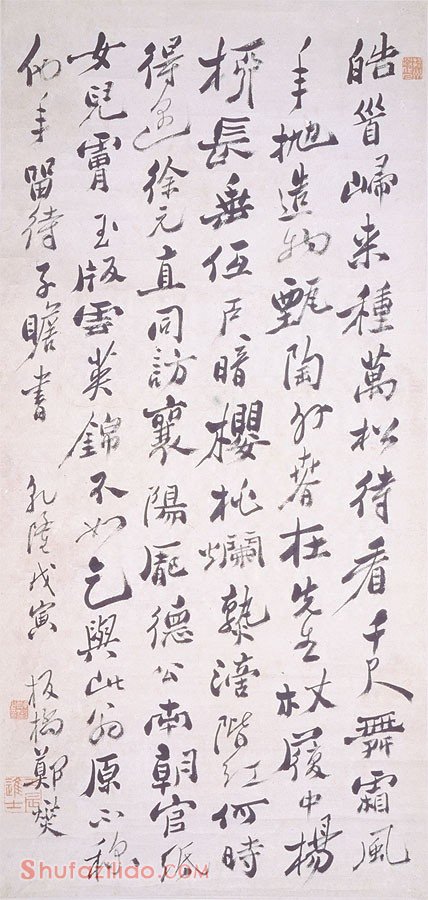 皓首歸来種萬松待看千尺舞霜風
年抛造物甄陶外春在先生杖屨中楊
柳長垂低戶暗櫻桃爛熟滴階紅何時
得徐元直同訪襄陽龐德公南朝官紙
女兒膚玉版雲英錦不如乞與此翁原不稱
他年留待子瞻書
乾隆戊寅 板橋鄭燮
Shufazhidao.com